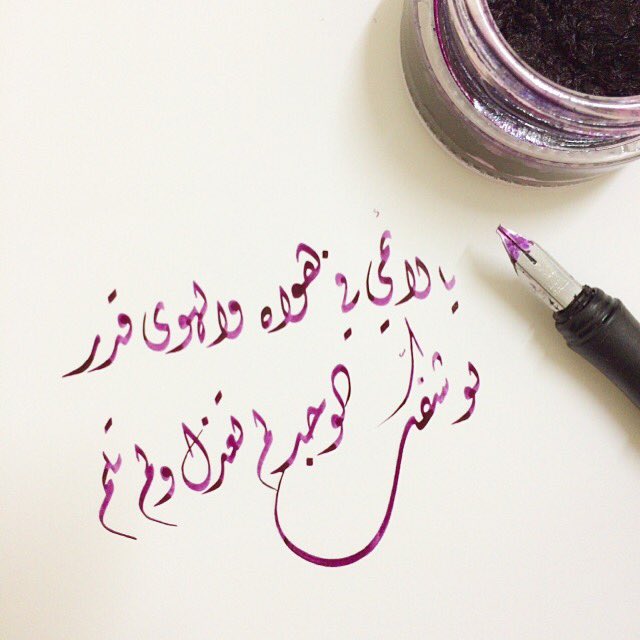 يا لائمي في هواه والهوى قدر
لو شفك الوجد لم تعذل ولم تلم